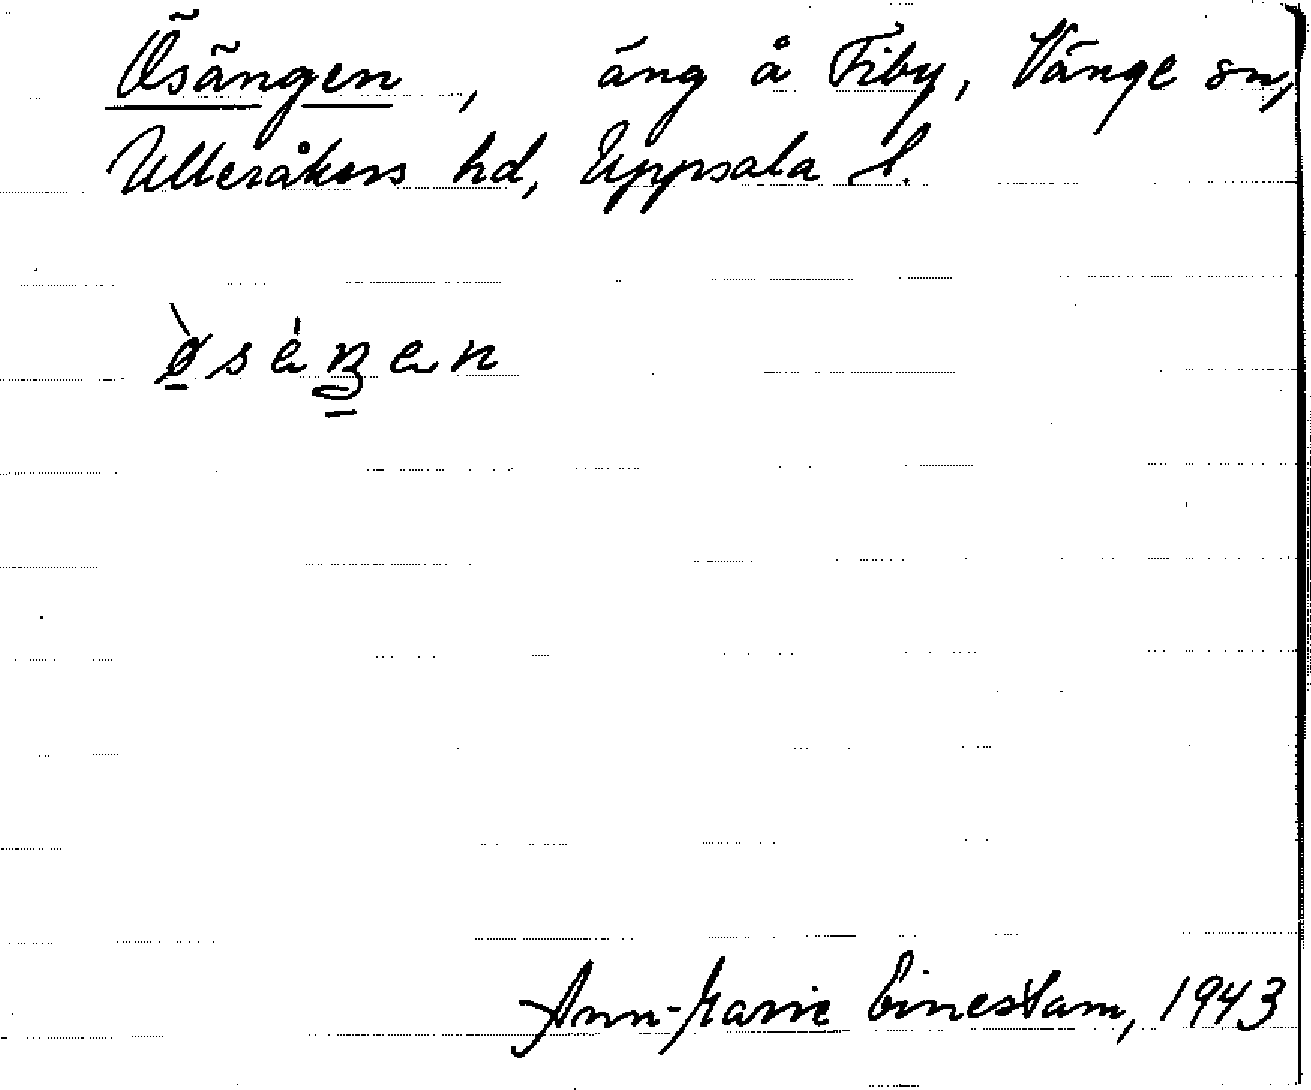 Ösängen, äng å Fiby, Vänge sn,
Ulleråkers hd, Uppsala l.
Ann-Marie Einestam, 1943